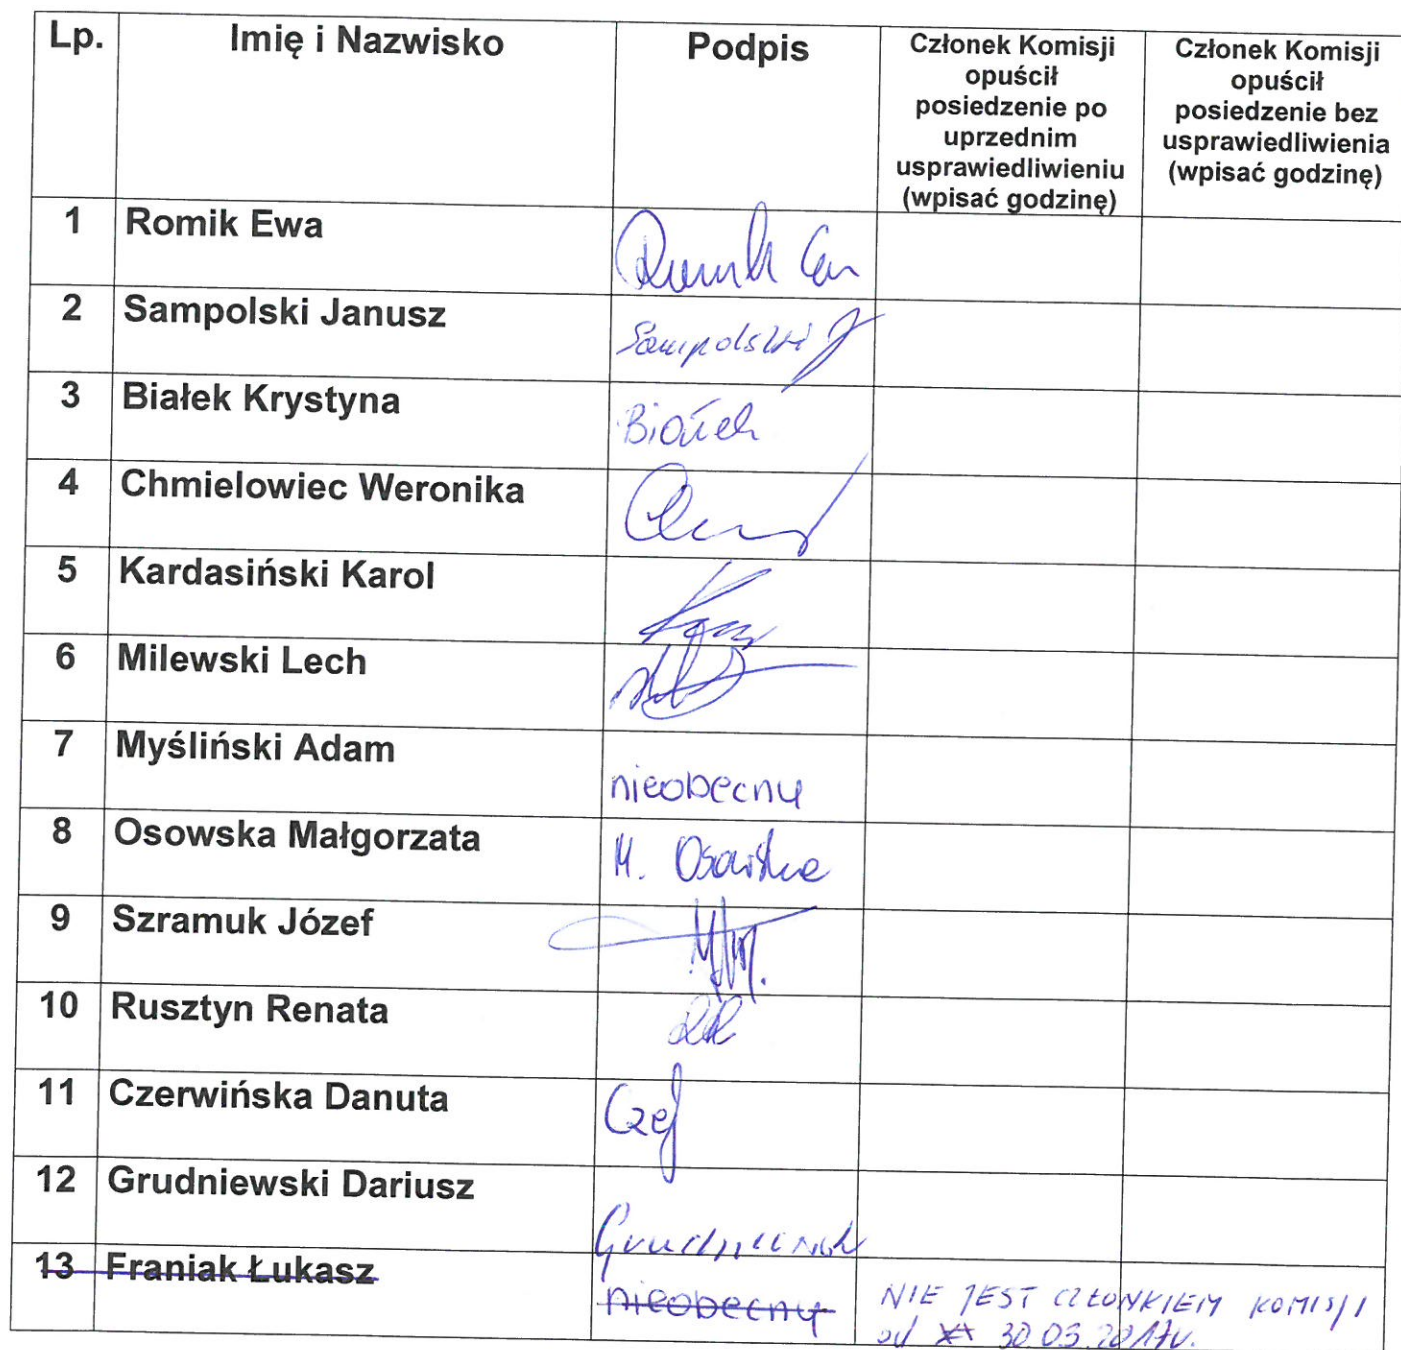 Lp. Imię i Nazwisko Podpis Członek Komisji opuścił posiedzenie po uprzednim usprawiedliwieniu (wpisać godzinę) Członek Komisji opuścił posiedzenie bez usprawiedliwienia (wpisać godzinę)
1 Romik Ewa
2 Sampolski Janusz Sampolski J
3 Białek Krystyna Białek
4 Chmielowiec Weronika
5 Kardasiński Karol
6 Milewski Lech
7 Myśliński Adam nieobecny
8 Osowska Małgorzata M. Osowska
9 Szramuk Józef
10 Rusztyn Renata RR
11 Czerwińska Danuta
12 Grudniewski Dariusz
13 Franiak Łukasz nieobecny NIE JEST CZŁONKIEM KOMISJI
od 30.03.2017r.